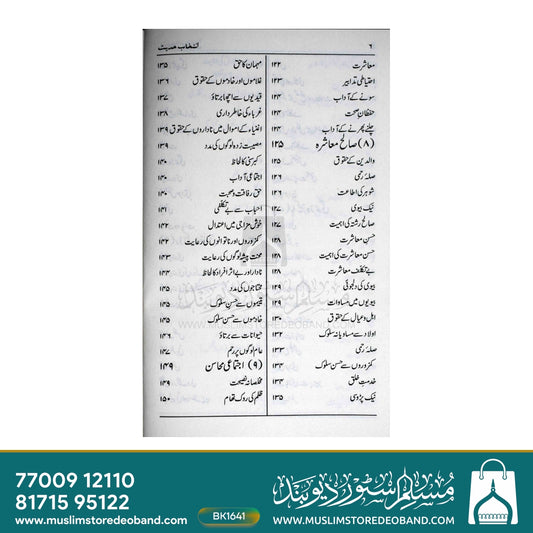 ۶ انتخاب حدیث
معاشرت ۱۲۲
احتیاطی تدابیر ۱۲۳
سونے کے آداب ۱۲۳
حفظانِ صحت ۱۲۴
چلنے پھرنے کے آداب ۱۲۴
(۸) صالح معاشرہ ۱۲۵
والدین کے حقوق ۱۲۵
صلہ رحمی ۱۲۶
شوہر کی اطاعت ۱۲۶
نیک بیوی ۱۲۷
صالح رشتہ کی اہمیت ۱۲۷
حسنِ معاشرت ۱۲۸
حسن معاشرت کی اہمیت ۱۲۸
بے تکلف معاشرت ۱۲۸
بیوی کی دلجوئی ۱۲۹
بیویوں میں مساوات ۱۲۹
اہل وعیال کے حقوق ۱۳۰
اولاد سے مساویانہ سلوک ۱۳۲
صلہ رحمی ۱۳۳
کمزوروں سے حسن سلوک ۱۳۳
خدمتِ خلق ۱۳۴
نیک پڑوسی ۱۳۵
مہمان کا حق ۱۳۵
غلاموں اور خادموں کے حقوق ۱۳۶
قیدیوں سے اچھا برتاؤ ۱۳۷
غرباء کی خاطر داری ۱۳۸
اغنیاء کے اموال میں ناداروں کے حقوق ۱۳۹
مصیبت زدہ لوگوں کی مدد ۱۳۹
کبر سنی کا لحاظ ۱۴۰
اجتماعی آداب ۱۴۰
حق رفاقت وصحبت ۱۴۰
احباب سے بے تکلفی ۱۴۱
خوش مزاجی میں اعتدال ۱۴۲
کمزوروں اور ناتوانوں کی رعایت ۱۴۲
محنت پیشہ لوگوں کی رعایت ۱۴۳
نادار اور بے اثر افراد کا لحاظ ۱۴۳
محتاجوں کی مدد ۱۴۵
یتیموں سے حسن سلوک ۱۴۵
خادموں سے حسن سلوک ۱۴۵
حیوانات سے برتاؤ ۱۴۶
عام لوگوں پر رحم ۱۴۷
(۹) اجتماعی محاسن ۱۴۹
مخلصانہ نصیحت ۱۴۹
ظلم کی روک تھام ۱۵۰
مسلم سٹور دیوبند
WWW.MUSLIMSTOREDEOBAND.COM
77009 12110
81715 95122
www.muslimstoredeoband.com
BK1641
مسلم سٹور دیوبند
WWW.MUSLIMSTOREDEOBAND.COM